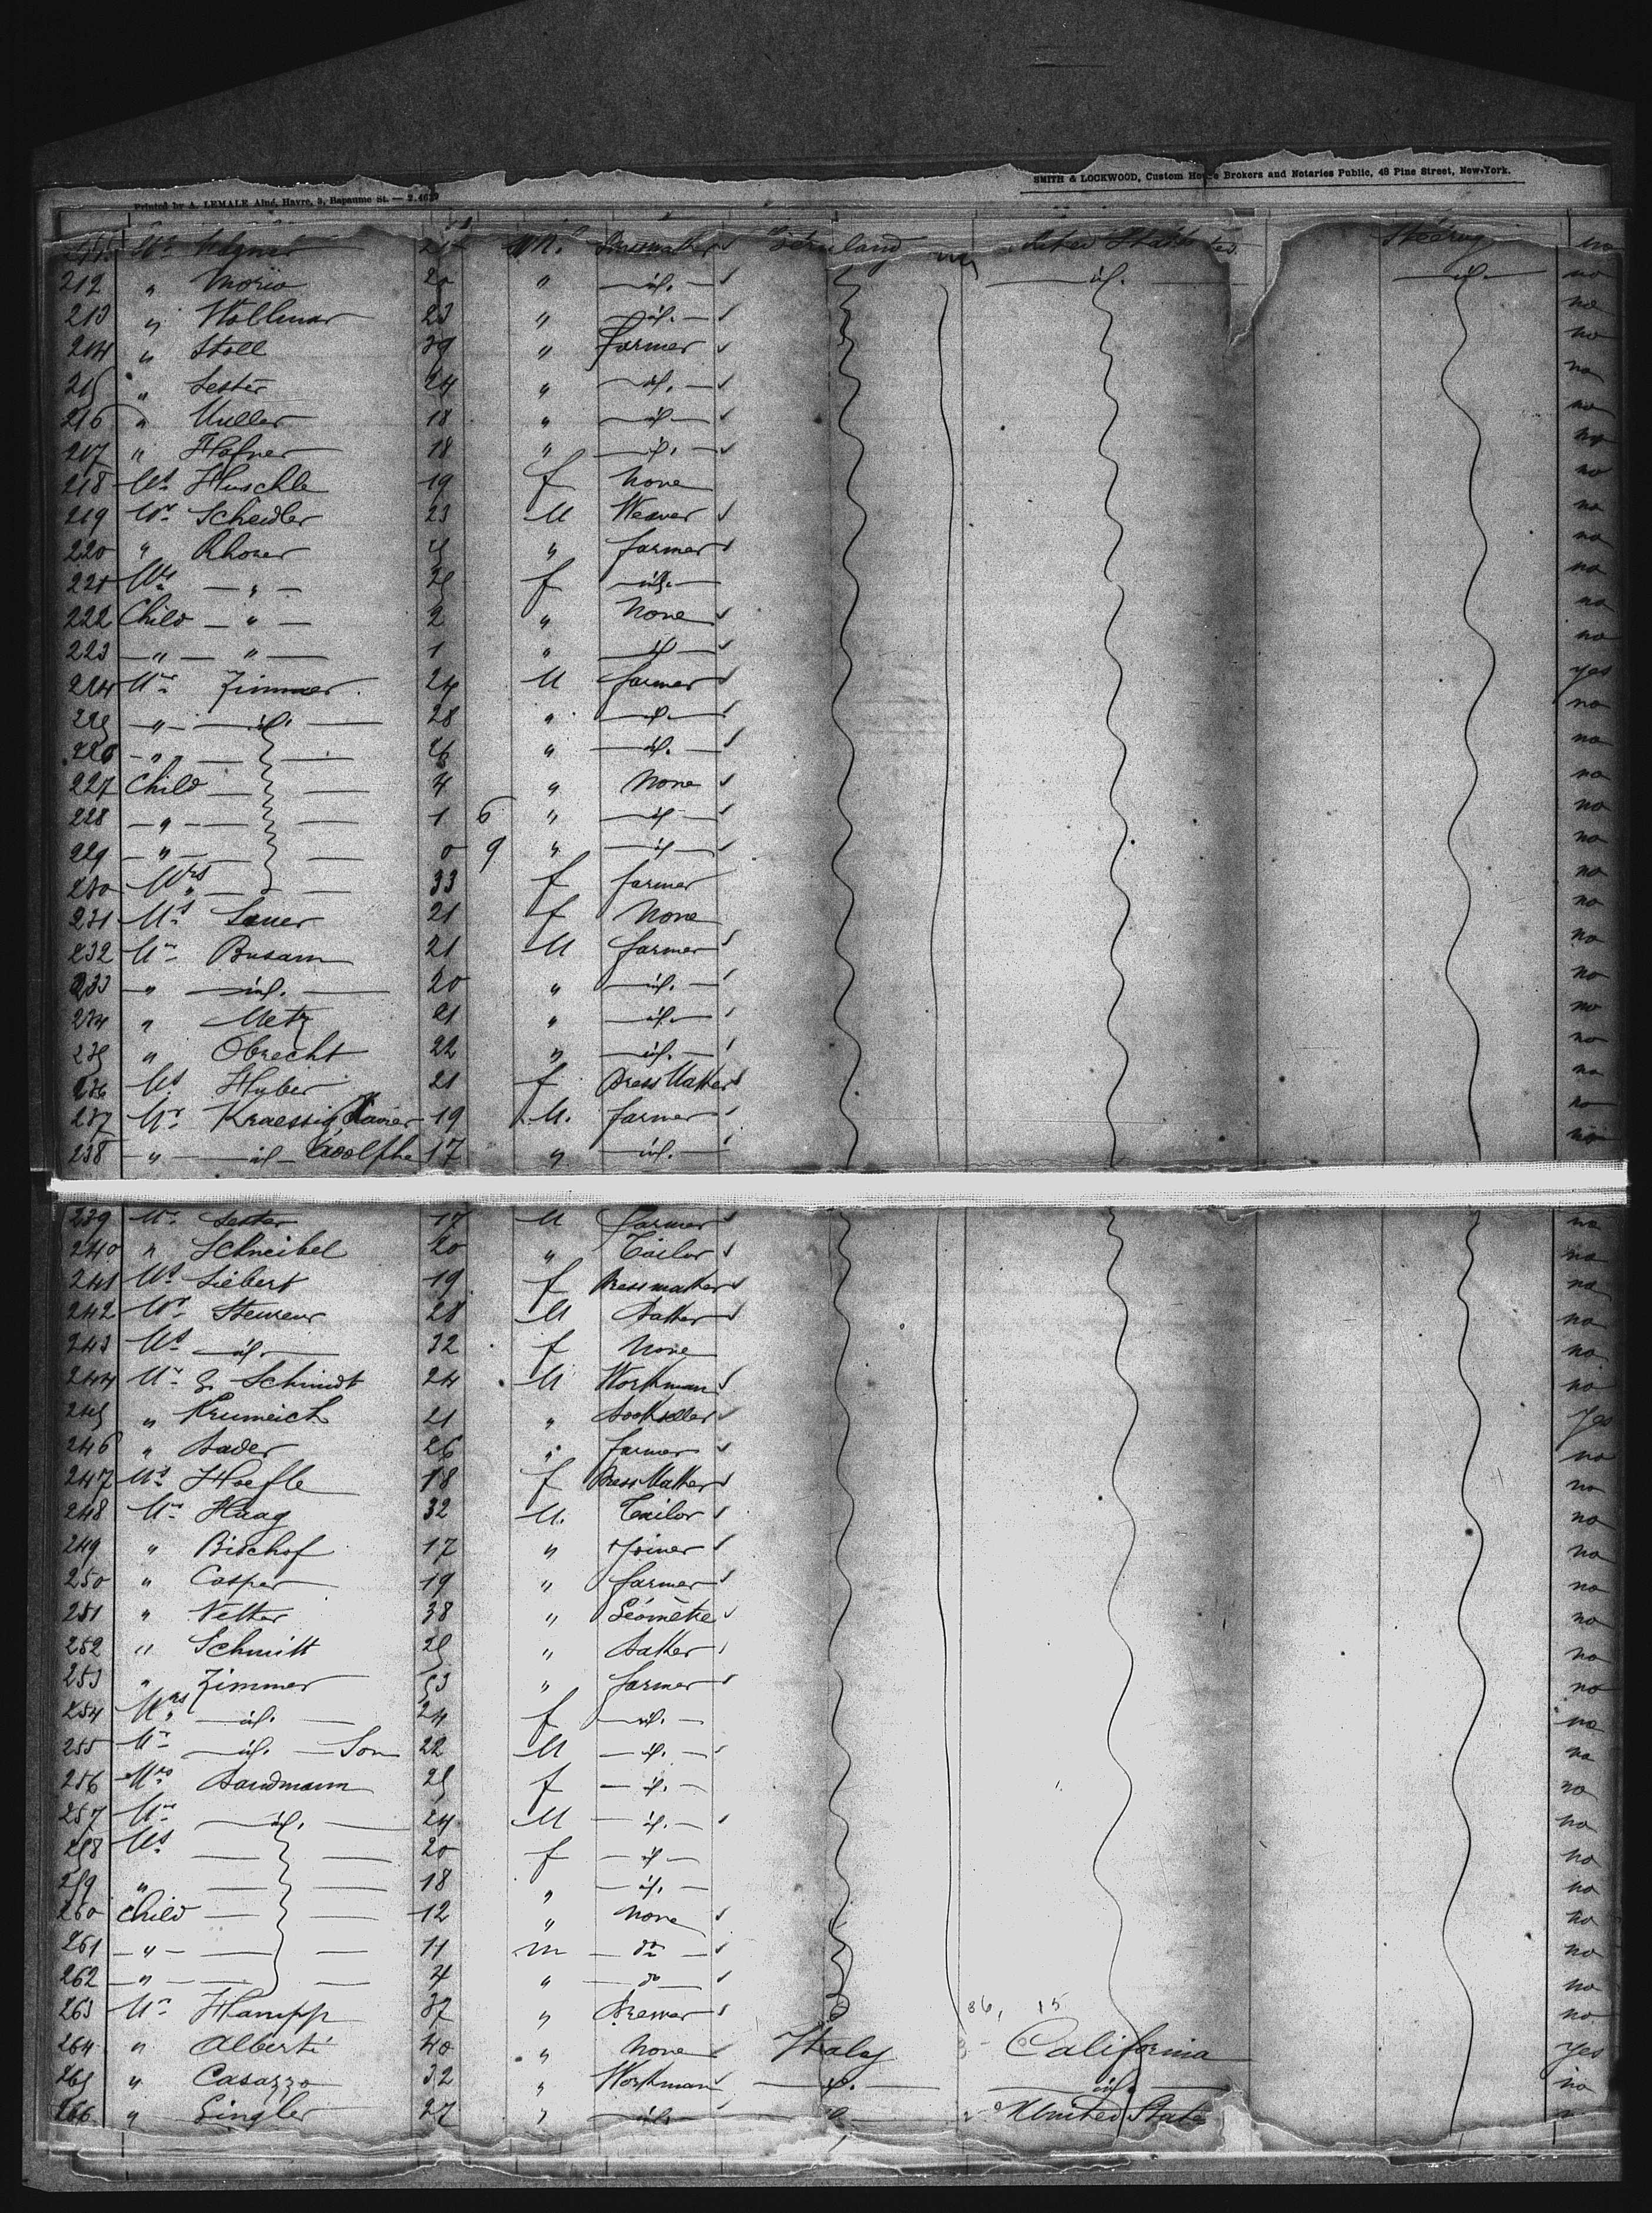 SMITH & LOCKWOOD, Custom House Brokers and Notaries Public, 48 Pine Street, New-York.
Printed by A. LEMALE Aîné, Havre, 3, Bapaume St. —
211 Mr Wagner M. Steerag no
212 " 20 " id. id. id. no
213 " Wollmar 23 " id. no
214 " Stoll 39 " farmer no
215 " Lester 24 " id. no
216 " Muller 18 " id. no
217 " Hafner 18 " id. no
218 Ms Huschle 19 f None no
219 Mr Scheidler 23 M Weaver no
220 " Rhoner " farmer no
221 " 25 f id. no
222 Child " 2 " None no
223 " " 1 " id no
224 Mr Zimmer 24 M farmer yes
225 " id. 28 " id no
226 " 26 " id. no
227 Child 4 " None no
228 " 1 6 " id no
229 " 0 9 " id no
230 Mrs " 33 f farmer no
231 Ms Lauer 21 f None no
232 Mr Busam 21 M farmer no
233 " id. 20 " id. no
234 " Metz 21 " id. no
235 " Obrecht 22 " id. no
236 Ms Huber 21 f DressMaker no
237 Mr Kraessig Xavier 19 M. farmer no
238 " id Adolphe 17 " id. no
239 Mr Lester 17 M Farmer no
240 " Schneibel 20 " Tailor no
241 Ms Siebert 19 f Dressmaker no
242 Mr Steurer 28 M Baker no
243 Ms id. 32 f None no
244 Mr G. Schmidt 24 M Workman no
245 " Krumeich 21 " Bookseller Yes
246 " Bader 26 " farmer no
247 Ms Hoefle 18 f DressMaker no
248 Mr Haag 32 M. Tailor no
249 " Bischof 17 " Joiner no
250 " Casper 19 " farmer no
251 " Vetter 38 " Géomètre no
252 " Schmitt 25 " Baker no
253 " Zimmer 53 " farmer no
254 Mrs id. 24 f id. no
255 Mr id. Son 22 M id. no
256 Mrs Bandmann 25 f id. no
257 Mr id. 24 M id. no
258 Ms 20 f id no
259 " 18 " id. no
260 Child 12 " None no
261 " 11 m do no
262 " 4 " do no
263 Mr Hampp 37 " Brewer no
264 " Alberti 40 " None Italy California Yes
265 " Casazza 32 " Workman id. id. no
266 " Singler 27 " id. United State